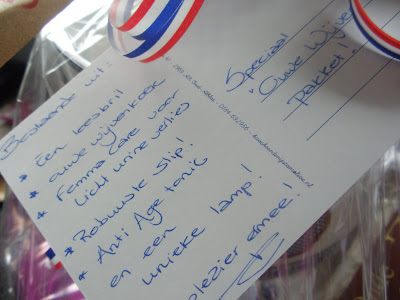 Bestaande uit:
* Een leesbril
* ouwe wijvenkoek
* Femma Care voor
licht urine verlies
* Robuuste slip!
* Anti Age tonic
en een
unieke lamp!
plezier ermee!
Speciaal
"Ouwe Wijve
pakket!"